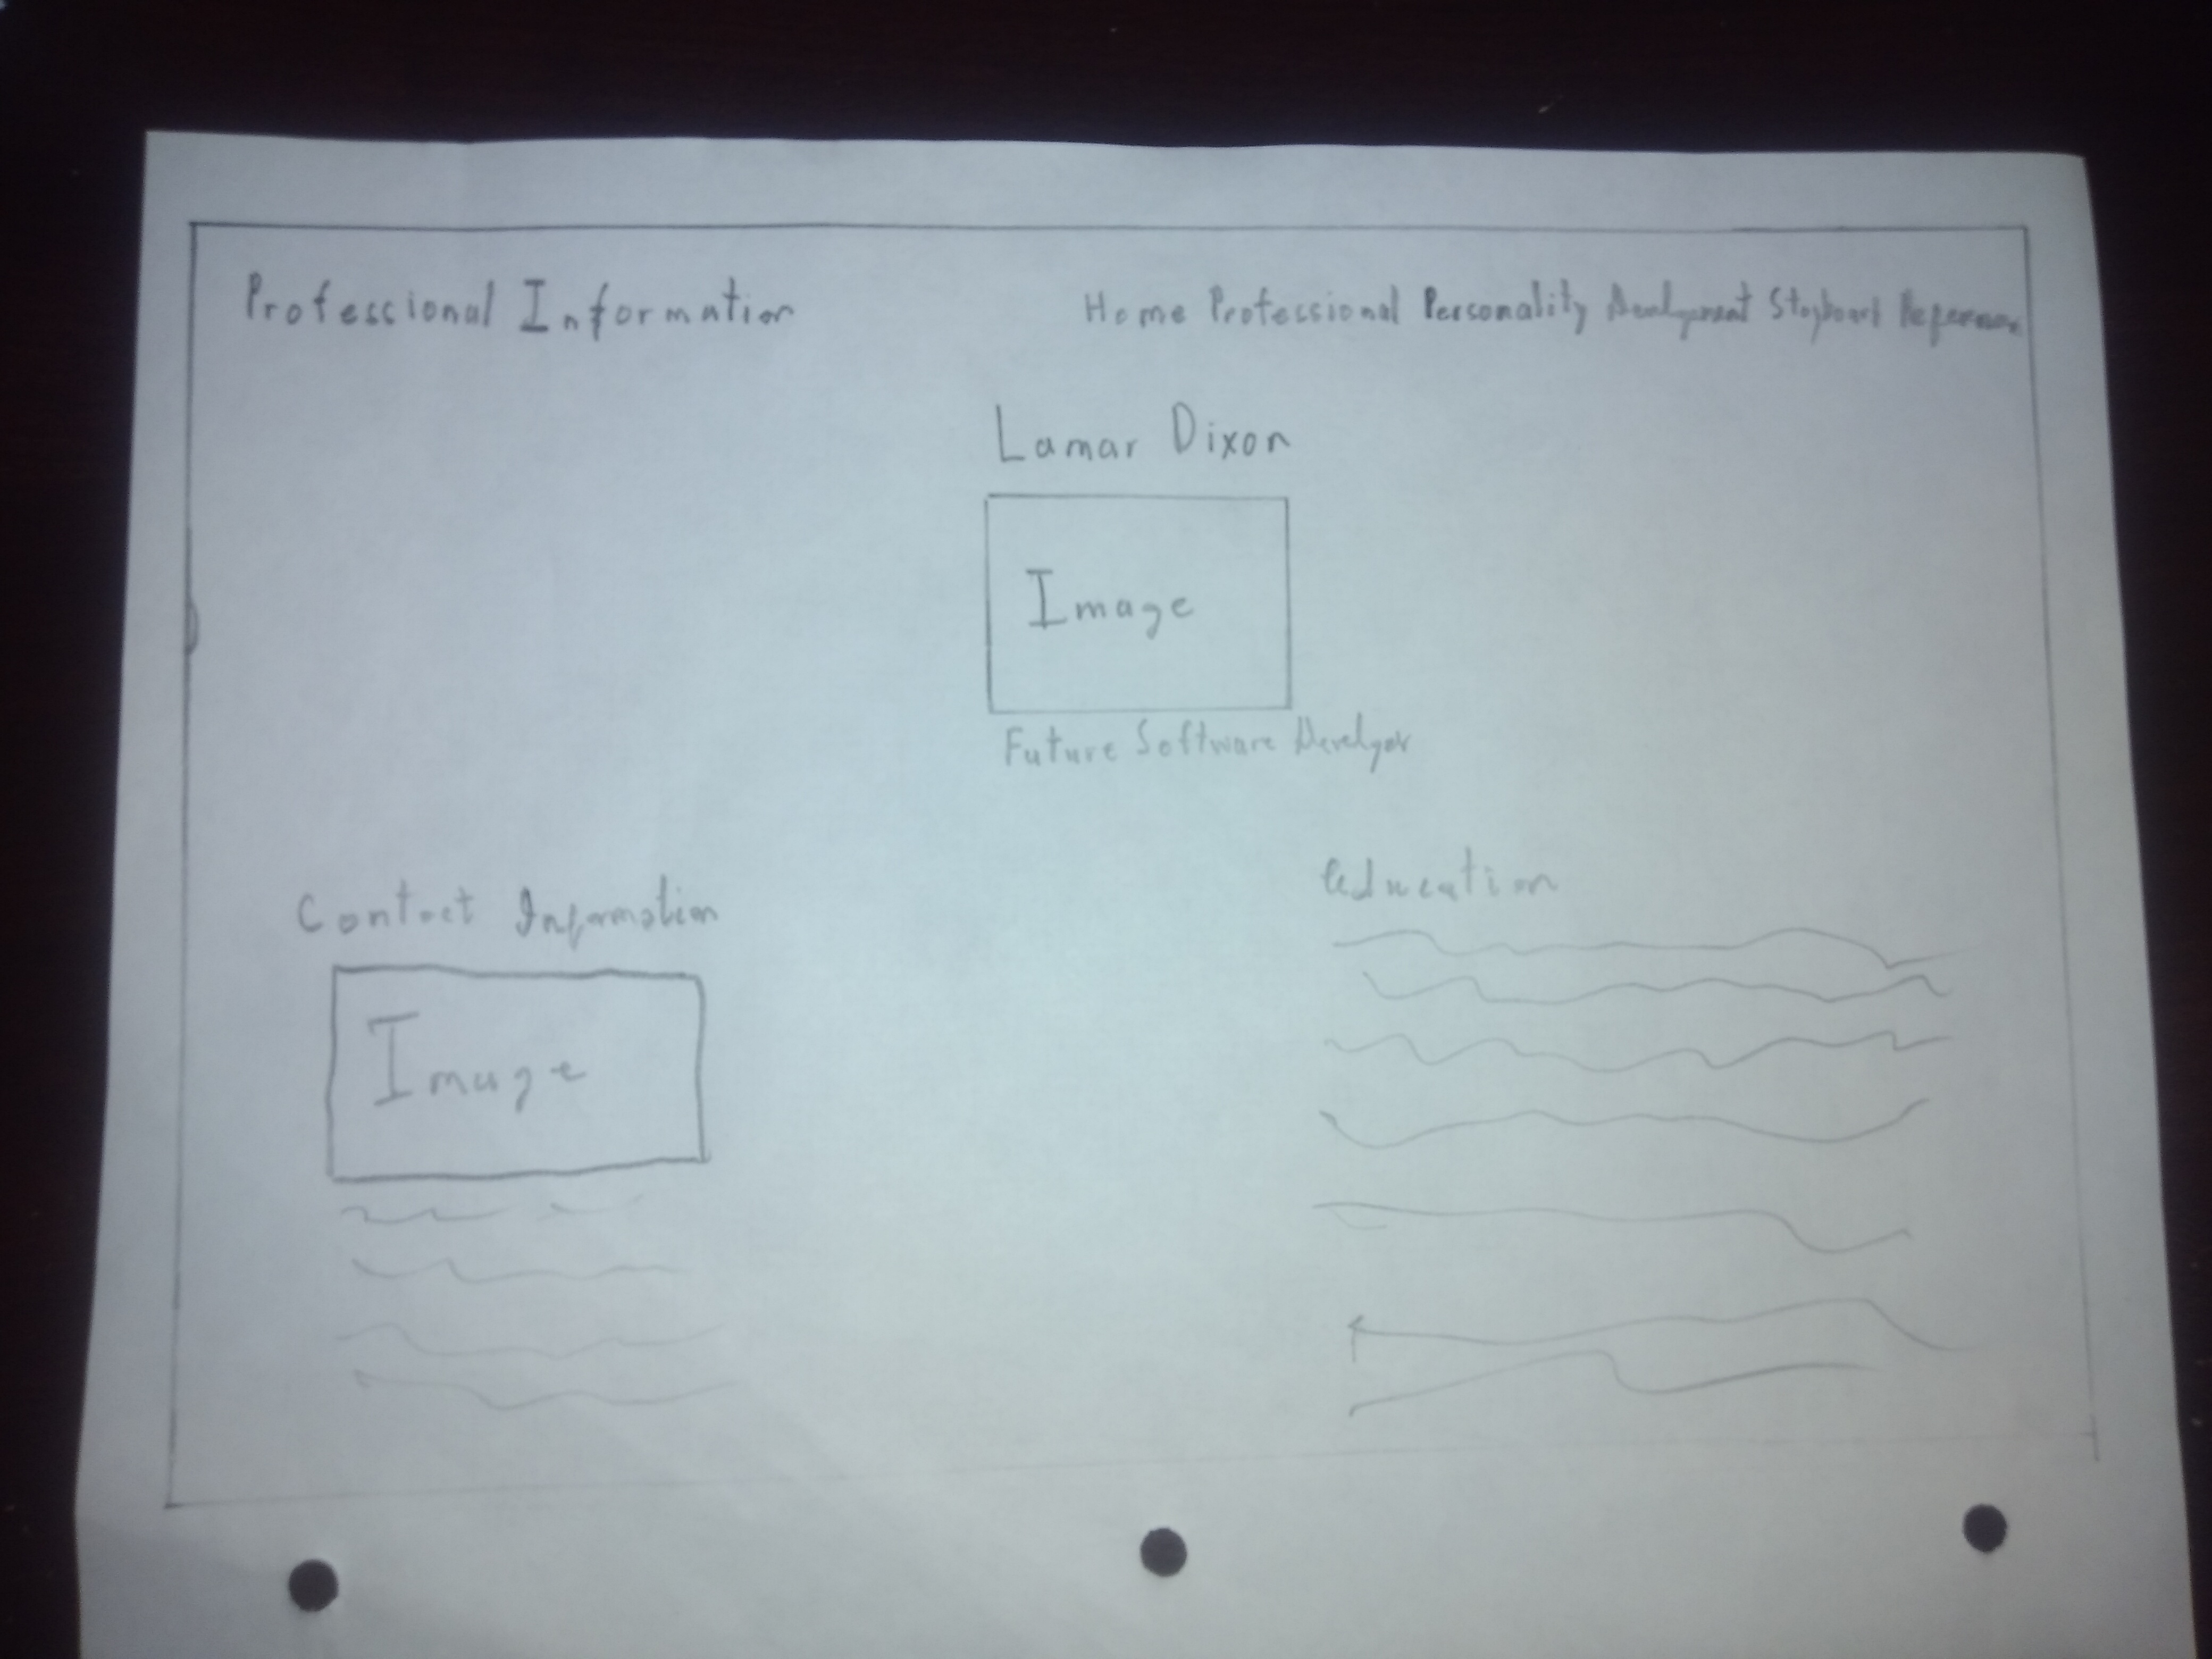 Professional Information
Home Professional Personality Development Storyboard
Lamar Dixon
Image
Future Software Developer
Contact Information
Image
Education